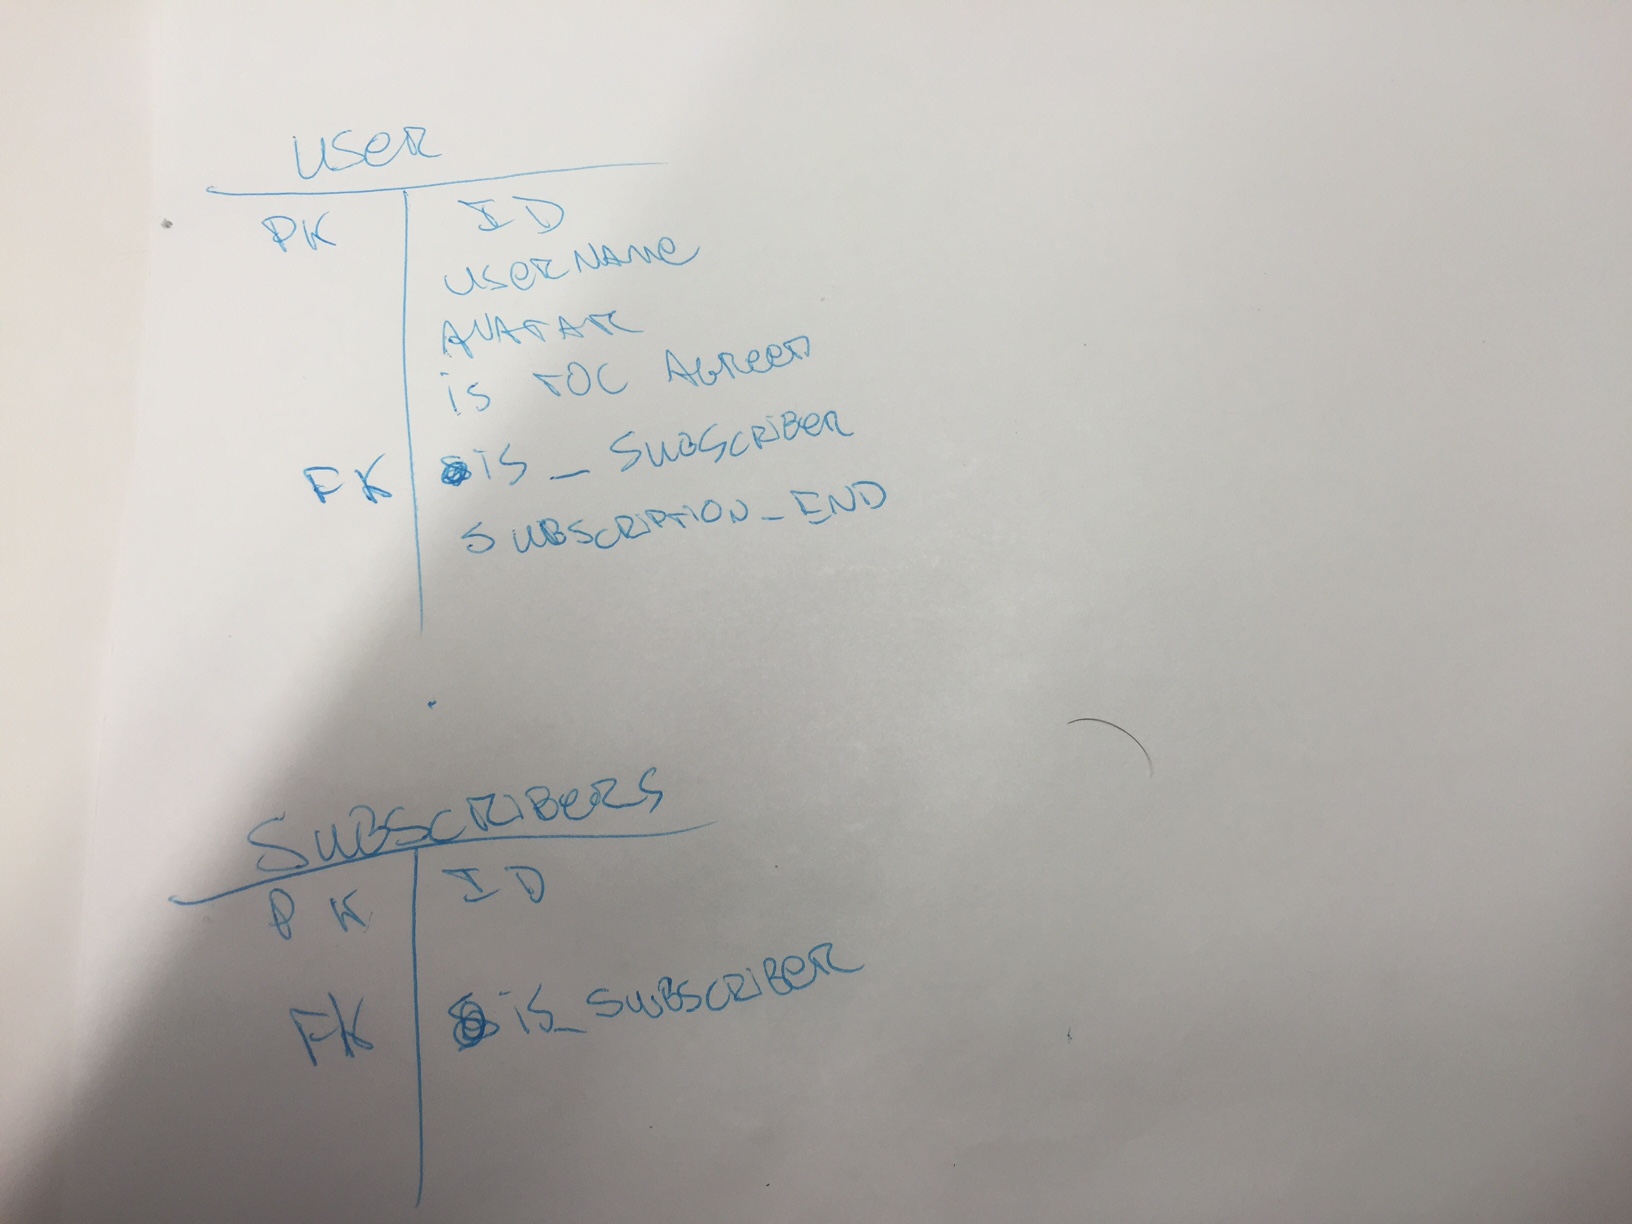 USER
PK ID
USERNAME
AVATAR
is TOC AGREED
FK is_SUBSCRIBER
SUBSCRIPTION_END
SUBSCRIBERS
PK ID
FK is_SUBSCRIBER